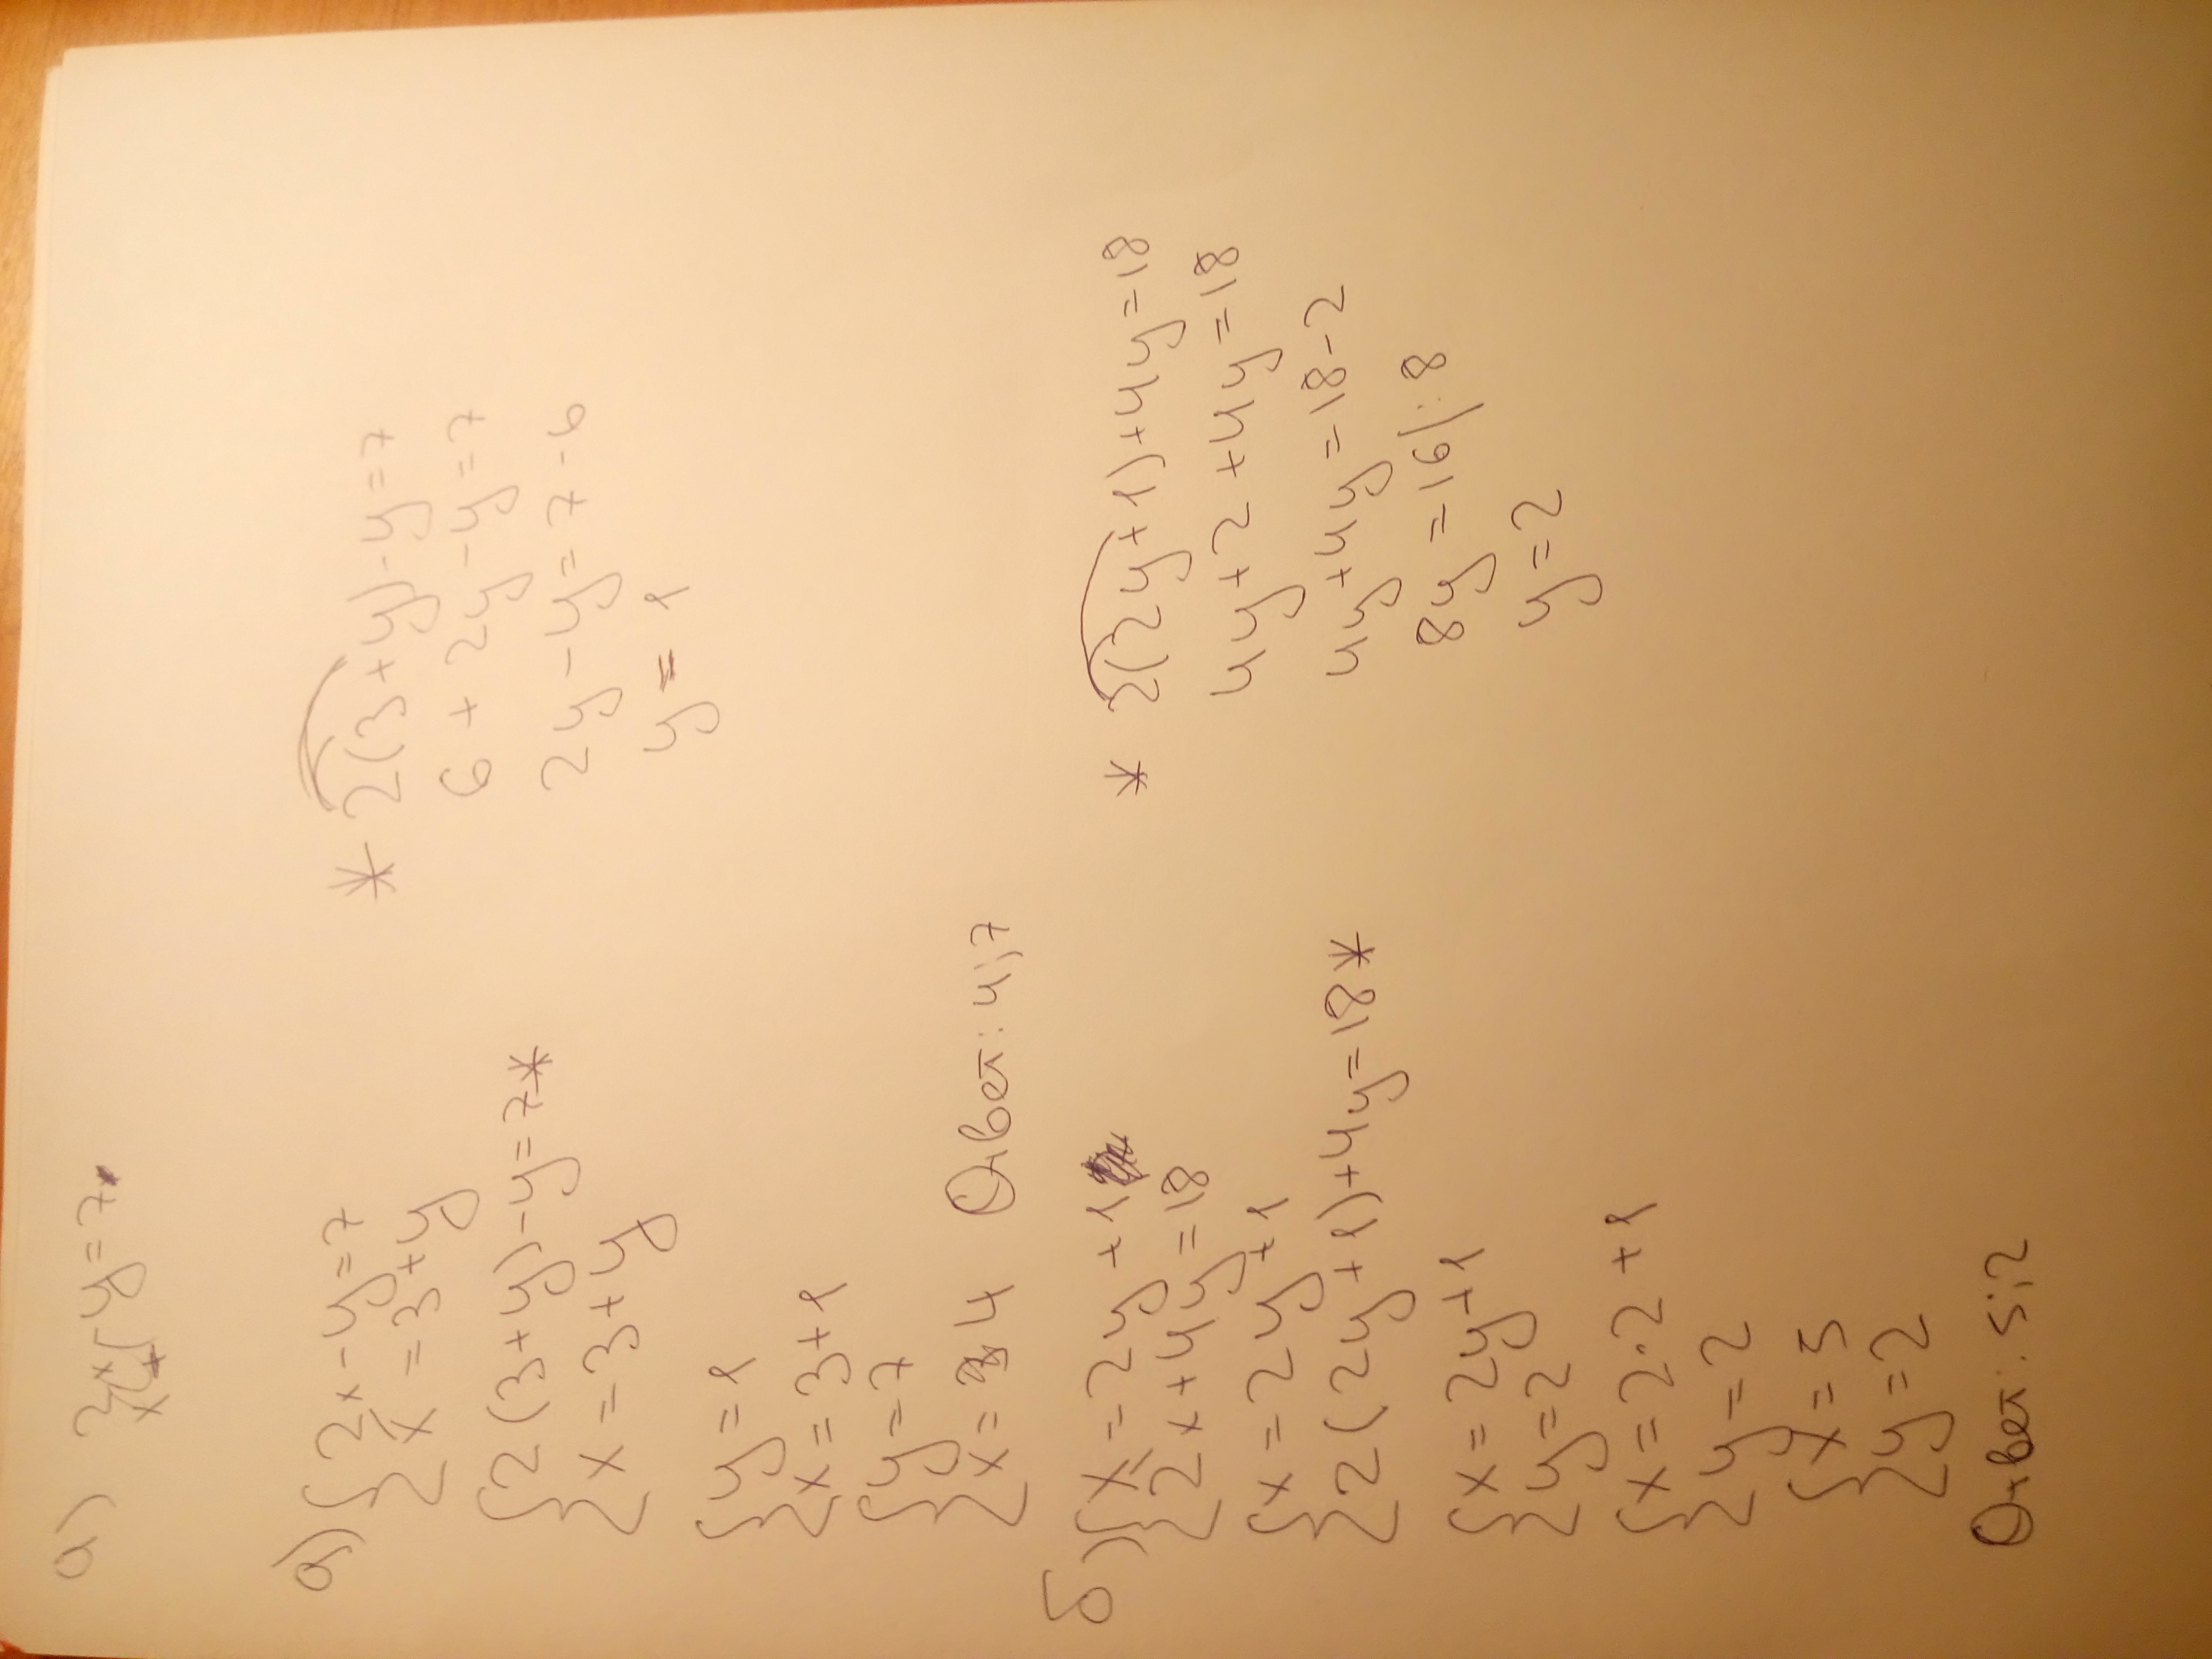 а) y=7
а) { 2x-y=7
x=3+y
{ 2(3+y)-y=7*
x=3+y
{ y=1
x=3+1
{ y=7
x=4 Ответ: 4;7
* 2(3+y)-y=7
6+2y-y=7
2y-y=7-6
y=1
б) { x=2y+1
2x+4y=18
{ x=2y+1
2(2y+1)+4y=18*
{ x=2y+1
y=2
{ x=2·2+1
y=2
{ x=5
y=2
Ответ: 5;2
* 2(2y+1)+4y=18
4y+2+4y=18
4y+4y=18-2
8y=16|:8
y=2